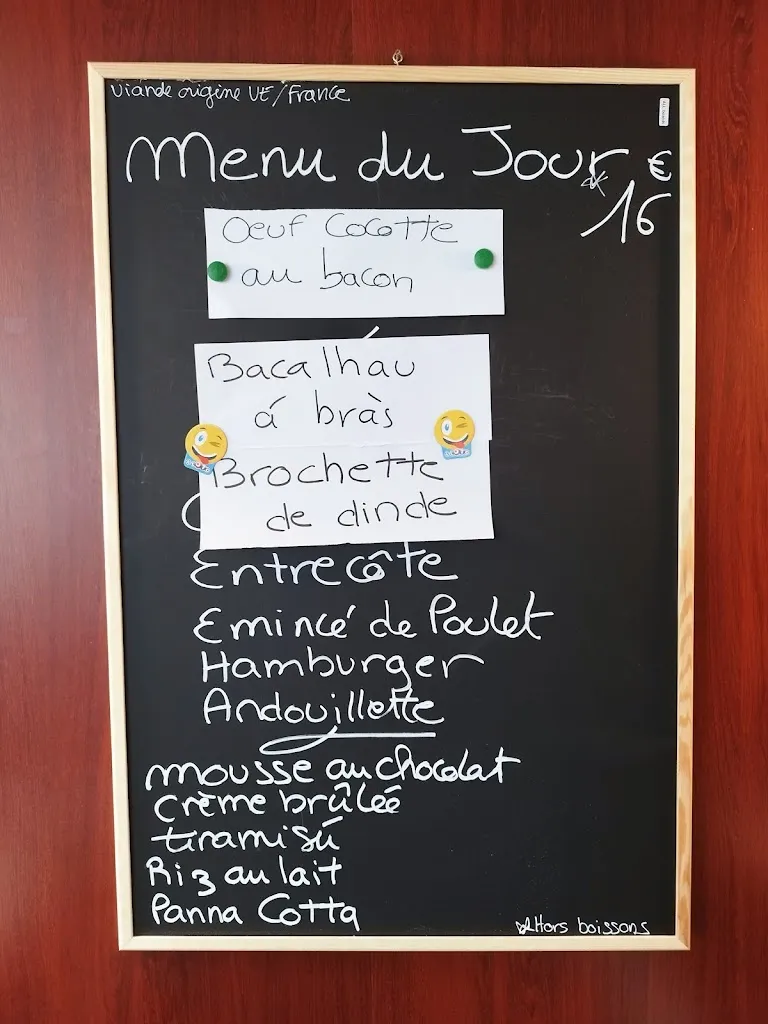 Viande origine UE/France
Menu du Jour €
16
Oeuf Cocotte
au bacon
Bacalhau
á bràs
Brochette
de dinde
Entrecôte
Emincé de Poulet
Hamburger
Andouillette
mousse au chocolat
Crème brûlée
tiramisú
Riz au lait
Panna Cotta
Hors boissons